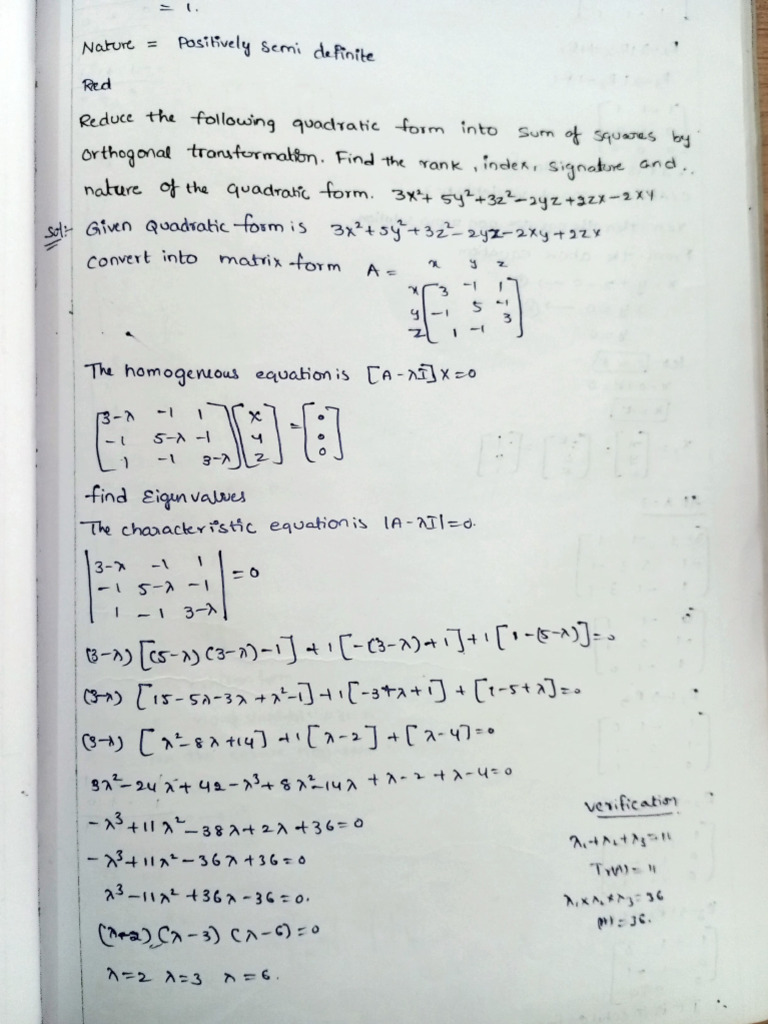 = 1.
Nature = Positively Semi definite
Red
Reduce the following quadratic form into sum of squares by
orthogonal transformation. Find the rank, index, signature and..
nature of the quadratic form. 3x²+ 5y²+3z²-2yz+2zx-2xy
Sol:- Given Quadratic form is 3x²+5y²+3z²-2yz-2xy+2zx
Convert into matrix form A =
x y z
x [3 -1 1]
y [-1 5 -1]
z [1 -1 3]
The homogeneous equation is [A-λI]X=0
[3-λ -1 1] [x] = [0]
[-1 5-λ -1] [y] [0]
[1 -1 3-λ] [z] [0]
find Eigen values
The characteristic equation is |A-λI|=0.
|3-λ -1 1|
|-1 5-λ -1| = 0
|1 -1 3-λ|
(3-λ) [(5-λ)(3-λ)-1] +1[-(3-λ)+1]+1[1-(5-λ)]=0
(3-λ) [15-5λ-3λ+λ²-1]+1[-3+λ+1] + [1-5+λ]=0
(3-λ) [λ²-8λ+14] +1[λ-2] +[λ-4]=0
3λ²-24λ+42-λ³+8λ²-14λ+λ-2+λ-4=0
-λ³+11λ²-38λ+2λ+36=0
-λ³+11λ²-36λ+36=0
λ³-11λ²+36λ-36=0.
(λ-2)(λ-3)(λ-6)=0
λ=2 λ=3 λ=6.
verification
λ₁+λ₂+λ₃=11
Tr(A)=11
λ₁×λ₂×λ₃=36
|A|=36.